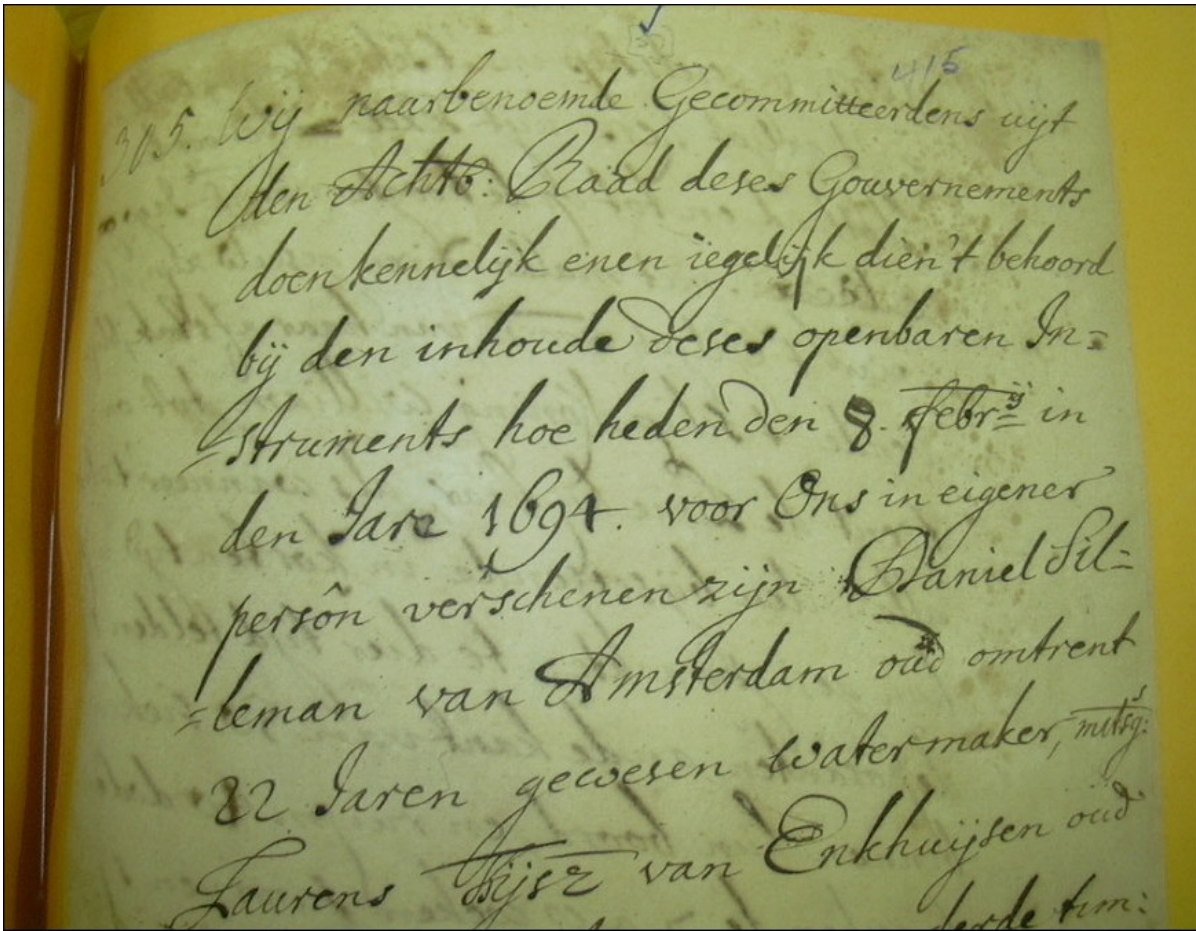 415
305. Wij naarbenoemde Gecommitteerdens uijt
den Achtb: Raad deses Gouvernements
doen kennelijk enen iegelijk dien't behoord
bij den inhoude deses openbaren In=
=struments hoe heden den 8. Febr=ij in
den Jare 1694. voor Ons in eigener
persôn verschenen zijn Daniel Sil=
=leman van Amsterdam oud omtrent
22 Jaren gewesen watermaker, mitsg:s
Laurens Thijsz van Enkhuijsen oud
derde tim: